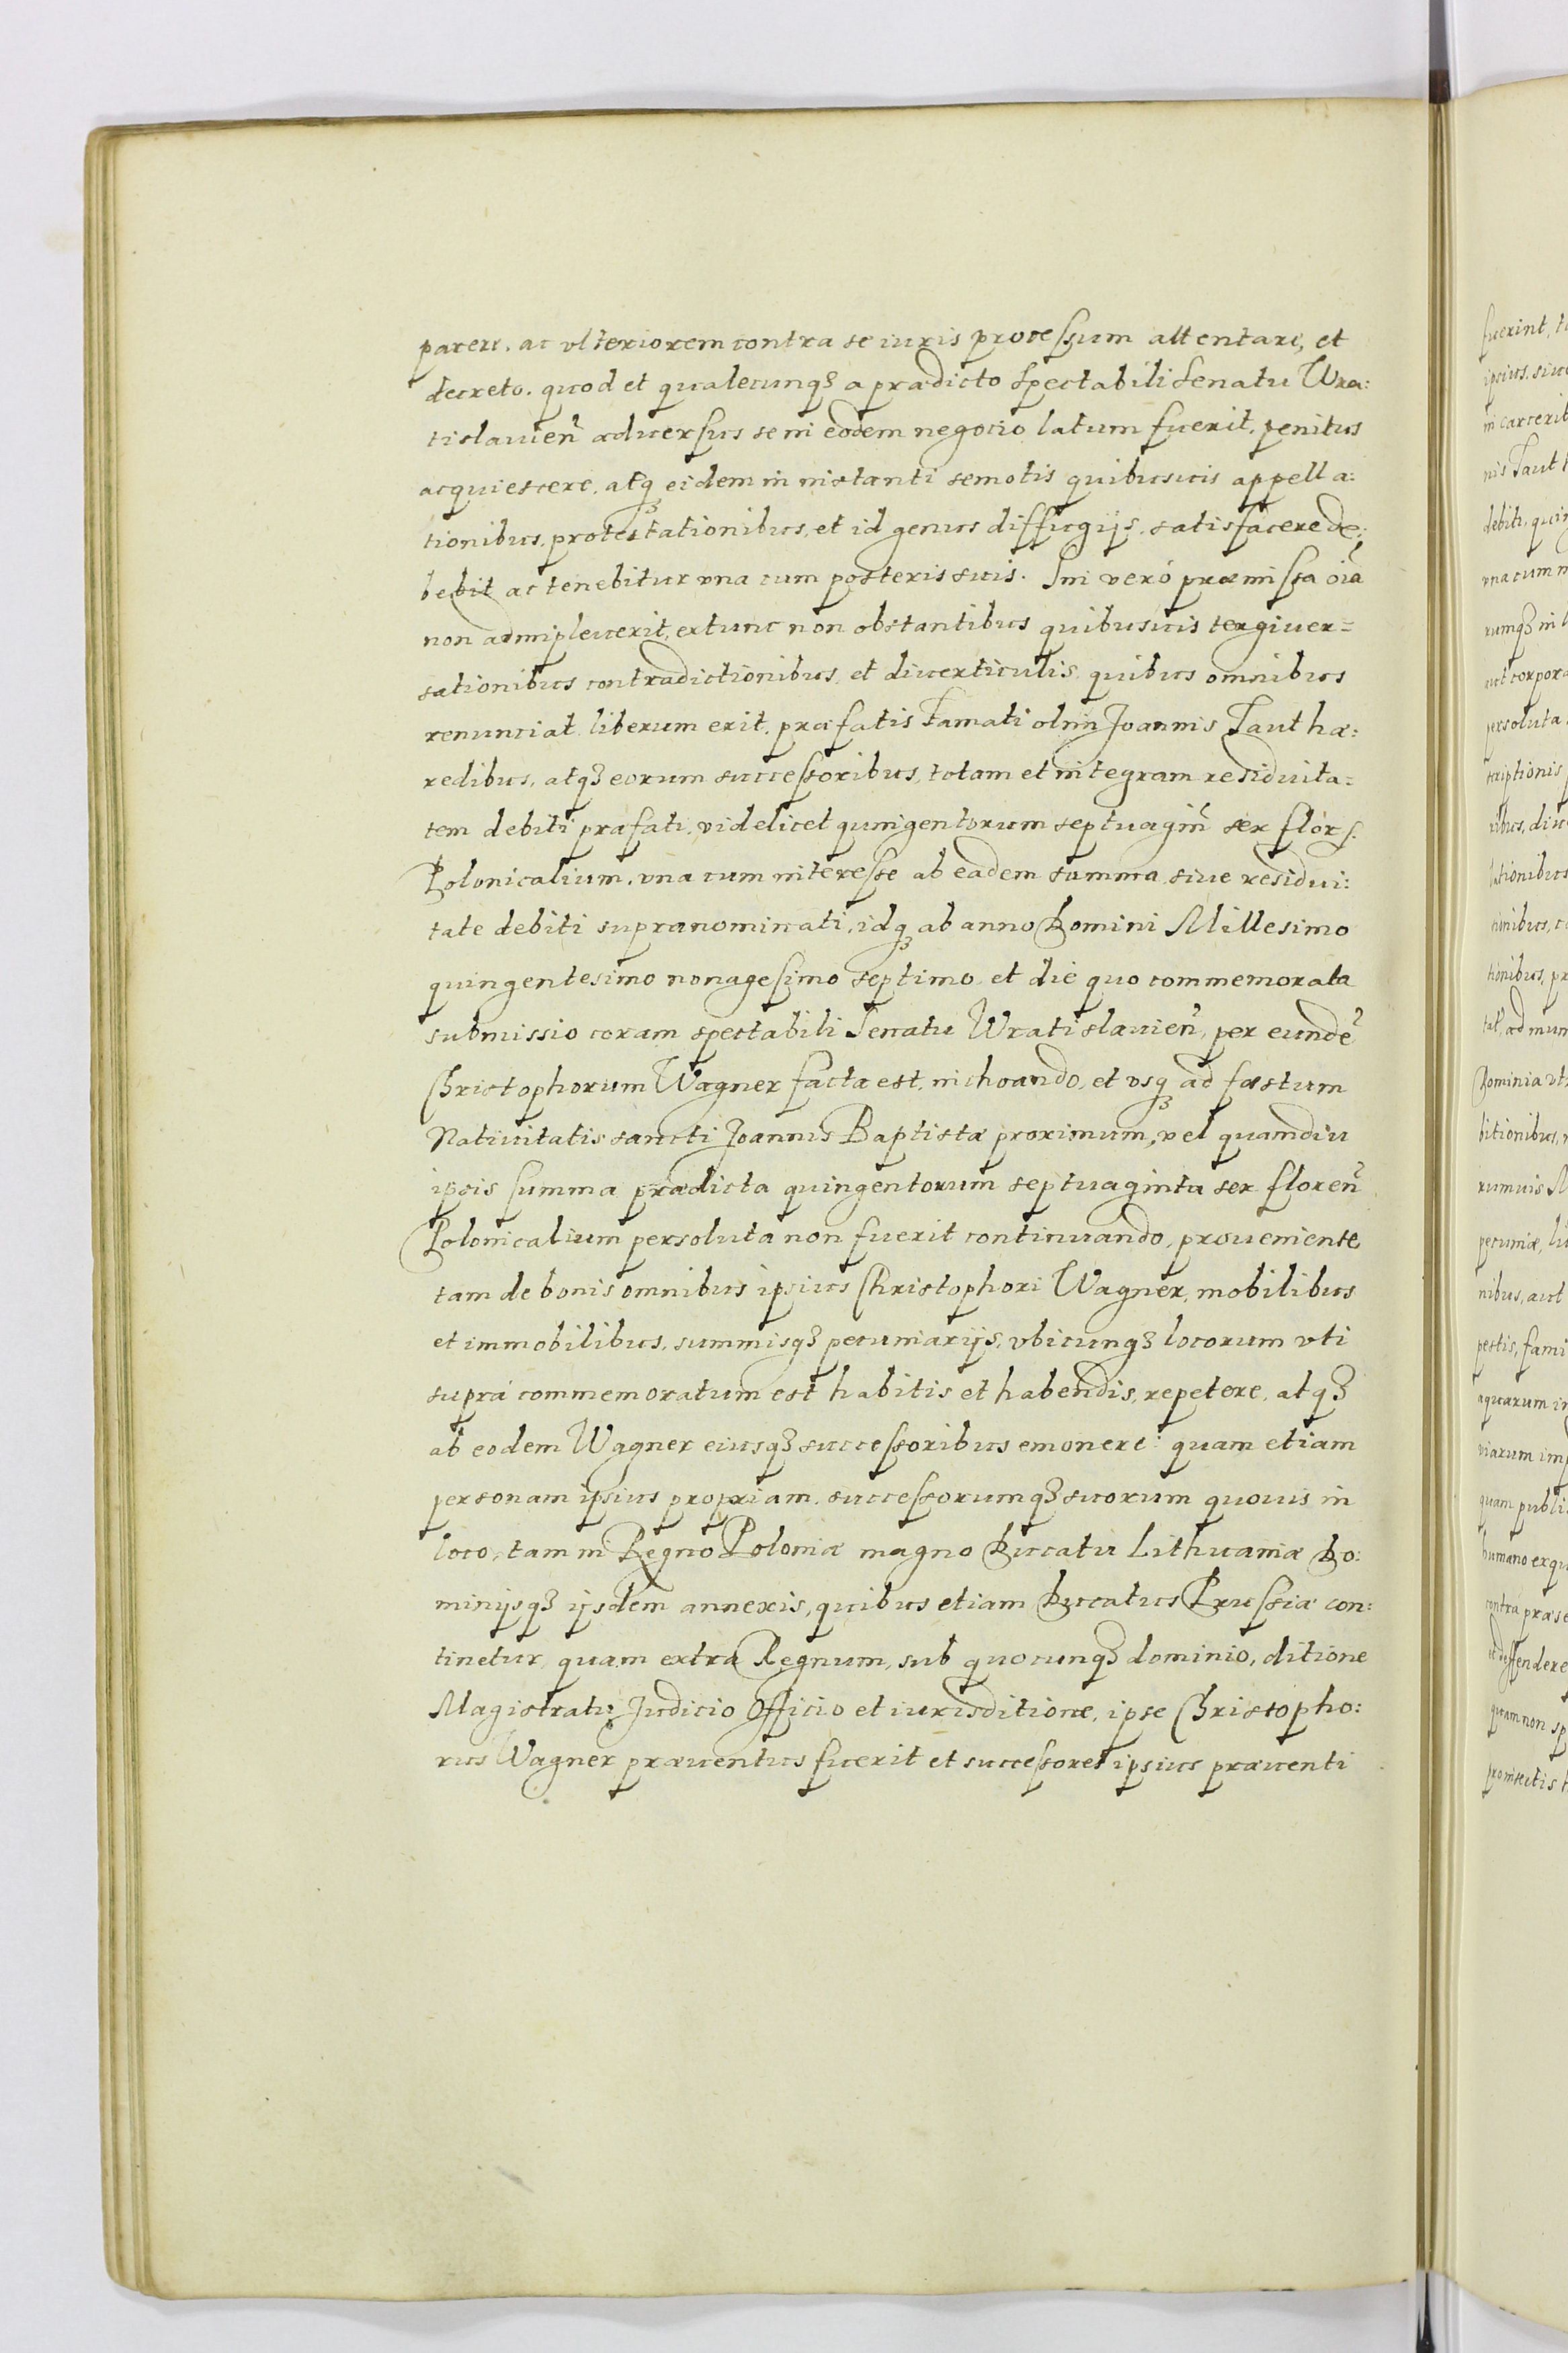 parere, ac vlteriorem contra se iuris processum attentare, et
decreto, quod et qualecunqȝ a prædicto Spectabili Senatu Wra:
tislauien̄ aduersus se in eodem negocio latum fuerit, penitus
acquiescere, atqȝ eidem in instanti semotis quibusuis appella:
tionibus, protestationibus, et id genus diffugijs, satisfacere de:
bebit ac tenebitur vna cum posteris suis. Sin verò præmissa oīa
non adimpleuerit, extunc non obstantibus quibusuis tergiuer=
sationibus contradictionibus, et diuerticulis, quibus omnibus
renunciat liberum erit, præfatis Famati olim Joannis Taut hæ:
redibus, atqȝ eorum successoribus, totam et integram residuita=
tem debiti præfati, videlicet quingentorum septuagin̄ sex flor s.
Polonicalium, vna cum interesse ab eadem summa siue residui:
tate debiti supranominati, idqȝ ab anno Domini Millesimo
quingentesimo nonagesimo septimo, et die quo commemorata
submissio coram spectabili Senatu Wratislauien̄, per eundē
Christophorum Wagner facta est, inchoando, et vsqȝ ad fæstum
Natiuitatis sancti Joannis Baptistæ proximum, vel quamdiu
ipsis summa prædicta quingentorum septuaginta sex floren̄
Polonicalium persoluta non fuerit continuando, proueniente
tam de bonis omnibus ipsius Christophori Wagner, mobilibus
et immobilibus, summisqȝ pecuniarijs, vbicunqȝ locorum vti
suprà commemoratum est habitis et habendis, repetere, atqȝ
ab eodem Wagner eiusqȝ successoribus emonere: quam etiam
personam ipsius propriam, successorumqȝ suorum quouis in
loco, tam in Regno Poloniæ magno Ducatu Lithuaniæ Do:
minijsqȝ ijsdem annexis, quibus etiam Ducatus Prussiæ con:
tinetur, quam extra Regnum, sub quocunqȝ dominio, ditione
Magistratu, Judicio Officio et iurisditione, ipse Christopho:
rus Wagner præuentus fuerit et successores ipsius præuenti